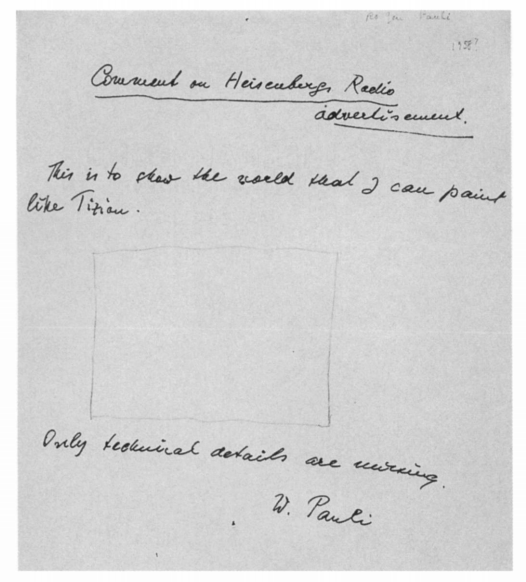 1958?
Comment on Heisenbergs Radio
advertisement.
This is to show the world that I can paint
like Tizian.
Only technical details are missing.
W. Pauli